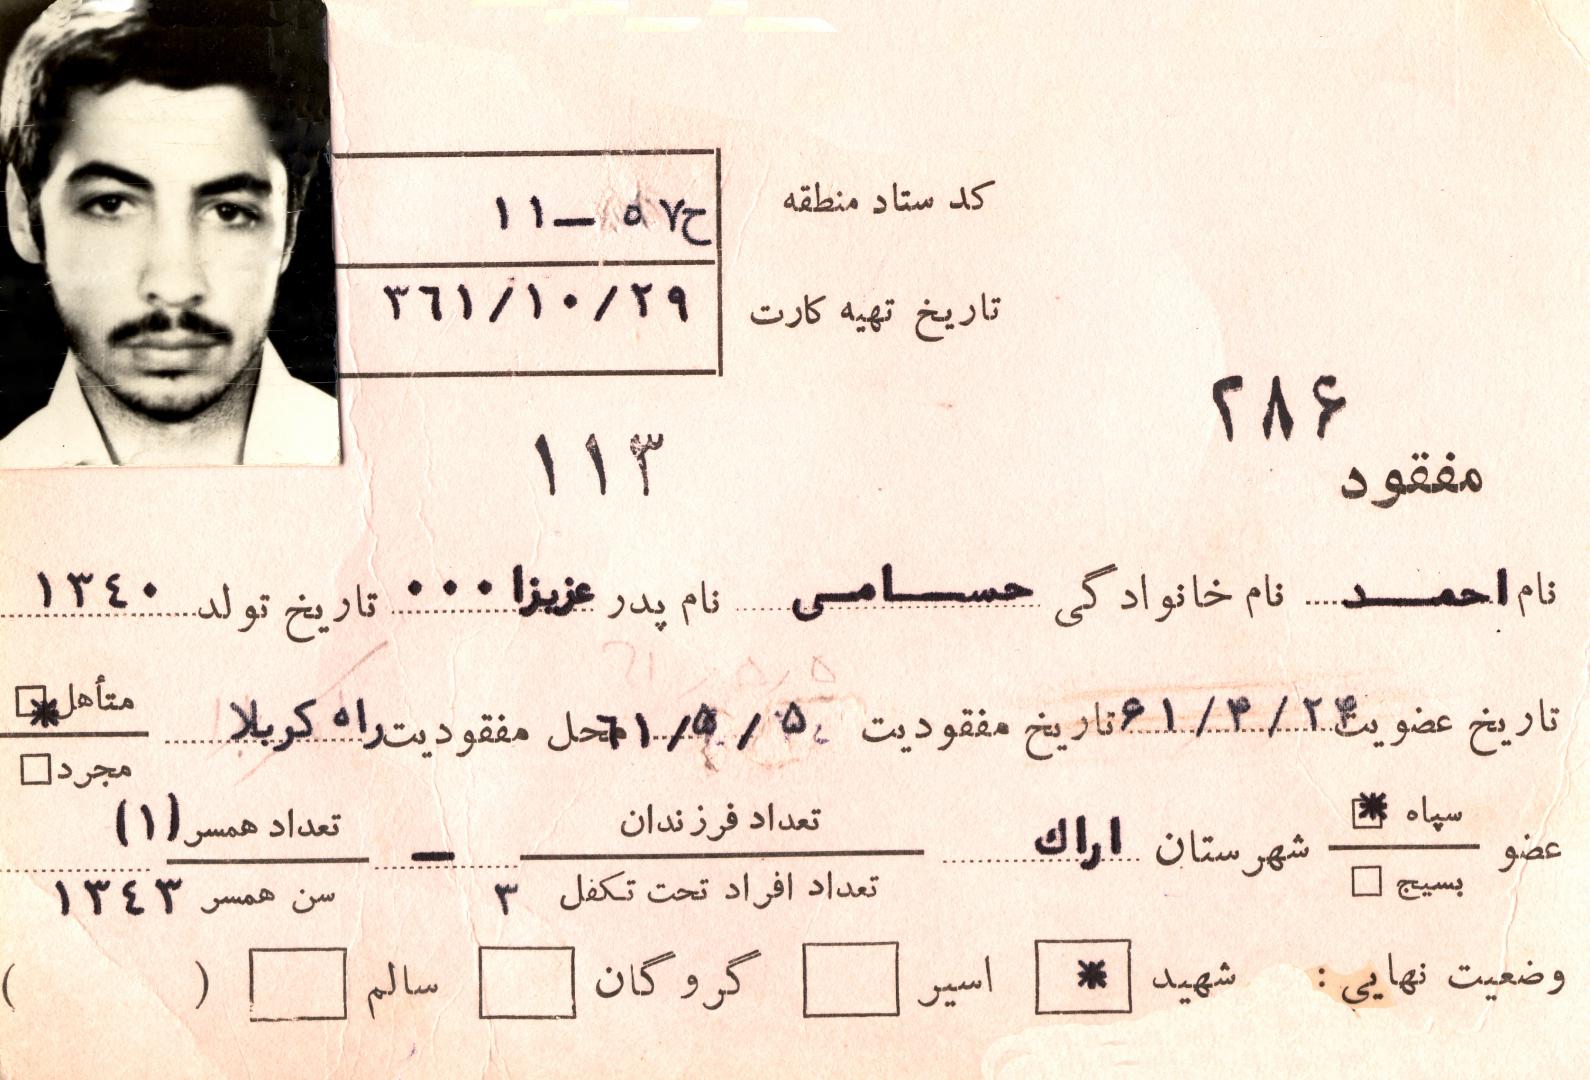 کد ستاد منطقه ح۵۷ – ۱۱
تاریخ تهیه کارت ۳۶۱/۱۰/۲۹
۲۸۶
۱۱۳
مفقود
نام احمد نام خانوادگی حسامی نام پدر عزیزا۰۰۰ تاریخ تولد ۱۳۴۰
تاریخ عضویت ۶۱/۴/۲۴ تاریخ مفقودیت ۶۱/۵/۵ محل مفقودیت راه کربلا متأهل
مجرد
عضو سپاه شهرستان اراک تعداد فرزندان – تعداد همسر (۱)
بسیج تعداد افراد تحت تکفل ۳ سن همسر ۱۳۴۳
وضعیت نهایی : شهید * اسیر گروگان سالم ( )